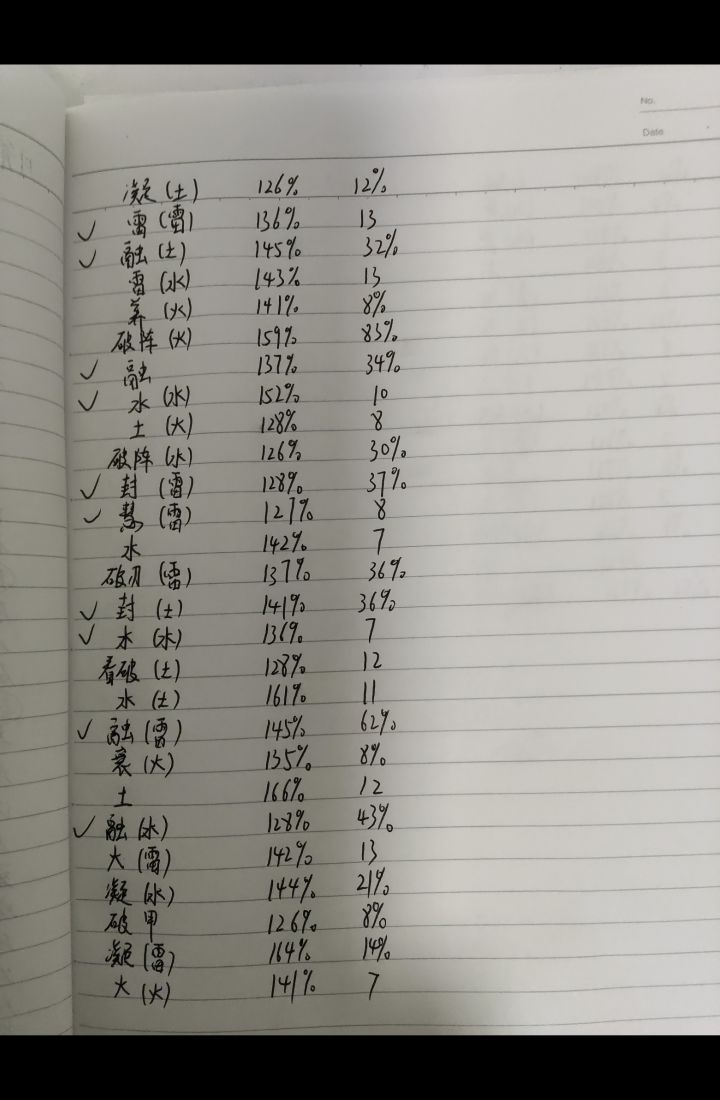 No.
Date
凝(土) 126% 12%
✓ 雷(雷) 136% 13
✓ 融(土) 145% 32%
雷(水) 143% 13
(火) 141% 8%
破阵(火) 159% 83%
✓ 融 137% 34%
✓ 水(水) 152% 10
土(火) 128% 8
破阵(水) 126% 30%
✓ 封(雷) 128% 37%
✓ 慧(雷) 127% 8
水 142% 7
破刃(雷) 137% 36%
✓ 封(土) 141% 36%
✓ 水(水) 136% 7
看破(土) 128% 12
水(土) 161% 11
✓ 融(雷) 145% 62%
衰(火) 135% 8%
土 166% 12
✓ 融(水) 128% 43%
火(雷) 142% 13
凝(水) 144% 21%
破甲 126% 8%
凝(雷) 164% 14%
火(火) 141% 7